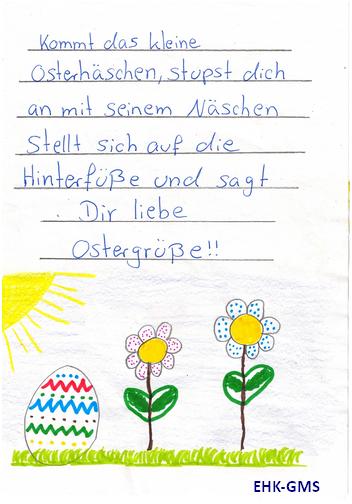 Kommt das kleine
Osterhäschen, stupst dich
an mit seinem Näschen
Stellt sich auf die
Hinterfüße und sagt
Dir liebe
Ostergrüße!!
EHK-GMS